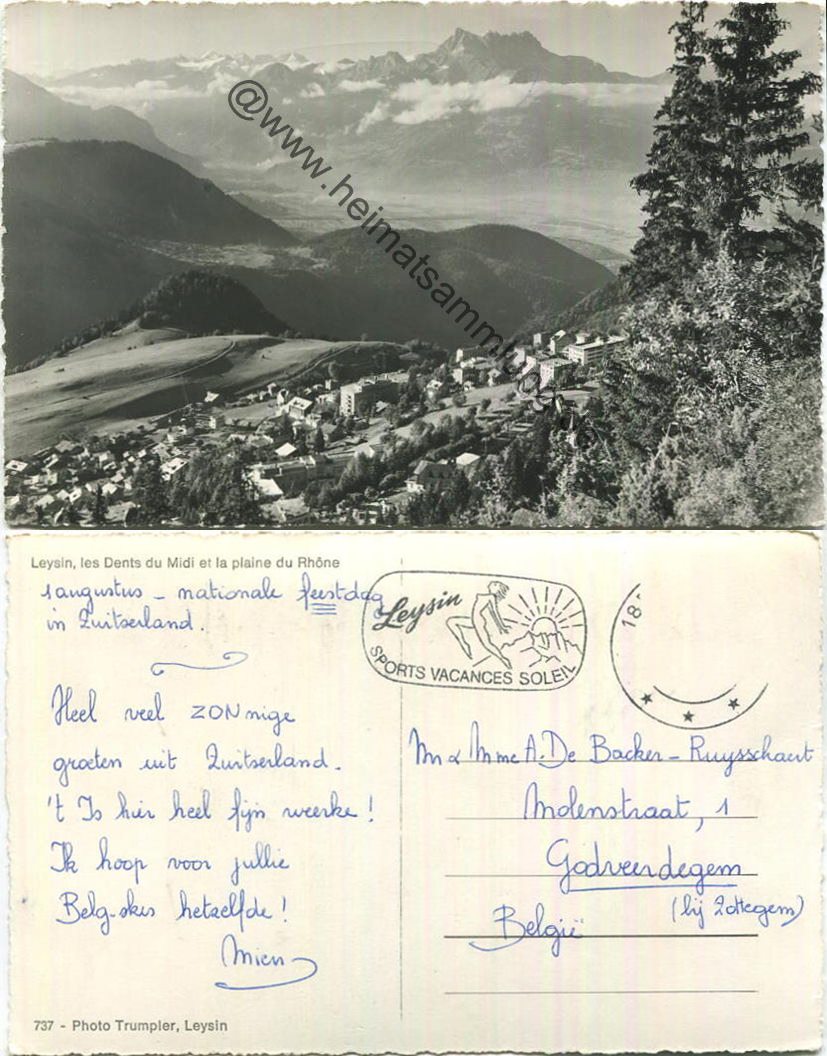 @www.heimatsammlung.de
Leysin, les Dents du Midi et la plaine du Rhône
1 augustus - nationale feestdag
in Zuitserland.
Heel veel ZONnige
groeten uit Zuitserland.
't Is hier heel fijn weerke!
Ik hoop voor jullie
Belg-skes hetzelfde!
Mien
737 - Photo Trumpler, Leysin
Leysin
SPORTS VACANCES SOLEIL
18.
Mr & Mme A. De Backer - Ruysschaert
Molenstraat, 1
Godveerdegem
(bij Zottegem)
België